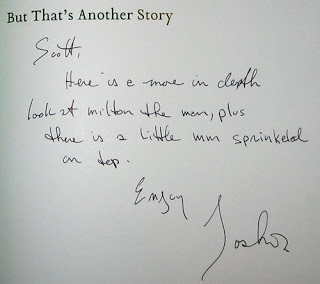 But That's Another Story
Scott,
Here is a more in depth
look at milton the man, plus
there is a little mm sprinkeled
on top.
Enjoy
Joshua